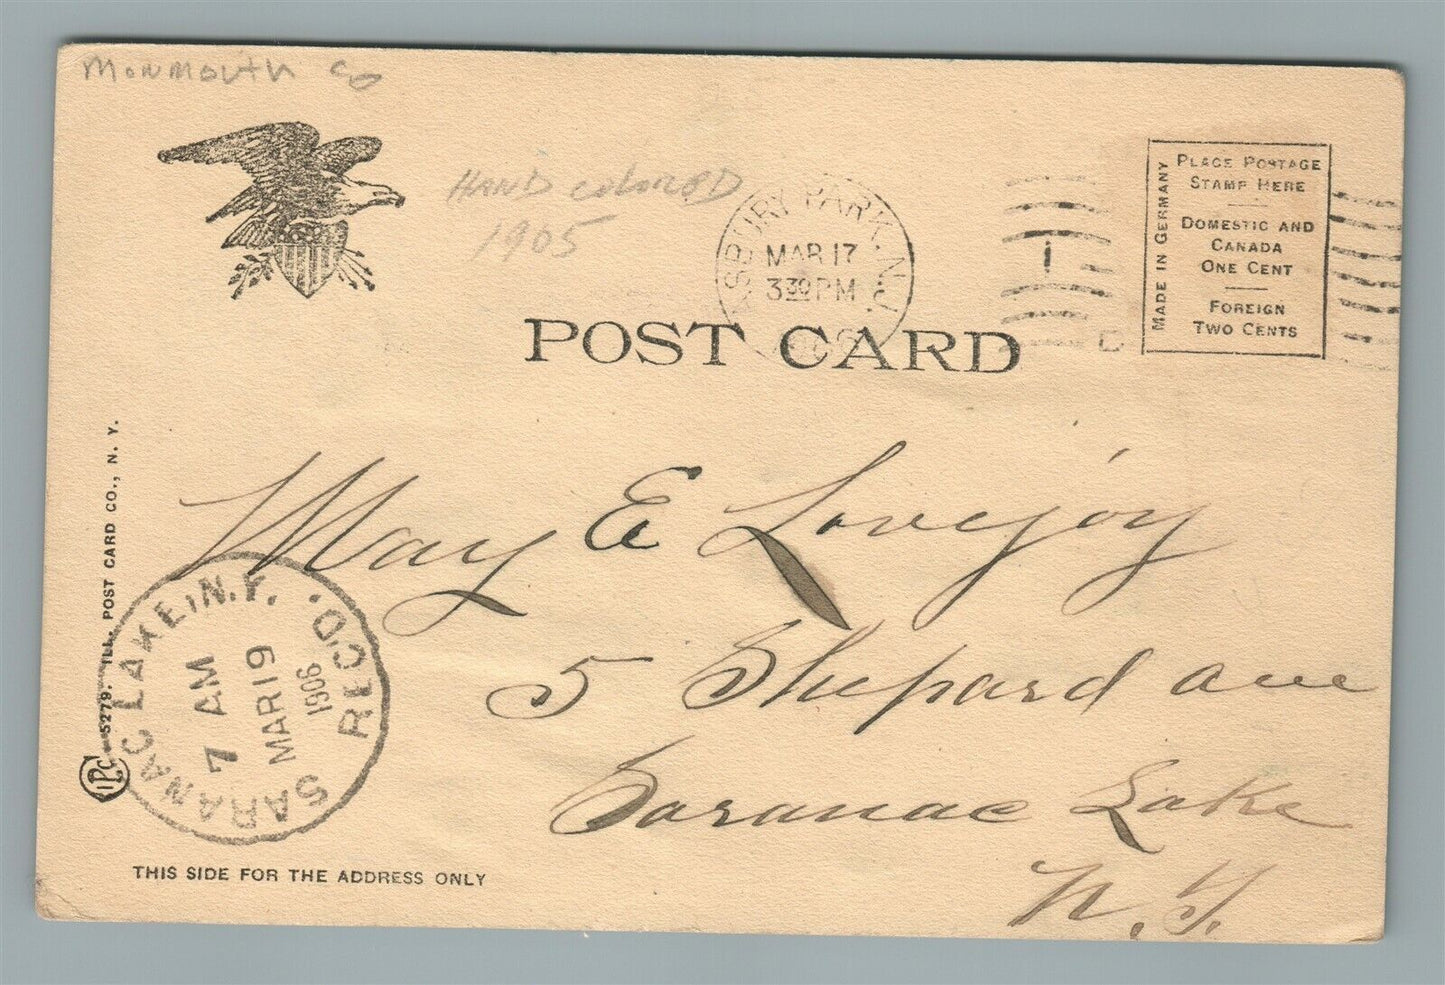 MONMOUTH CO
HAND COLORED
1905
ASBURY PARK, N.J.
MAR 17
3 30 PM
1
PLACE POSTAGE
STAMP HERE
DOMESTIC AND
CANADA
ONE CENT
FOREIGN
TWO CENTS
MADE IN GERMANY
POST CARD
May E Lovejoy
5 Shepard ave
Saranac Lake
N.Y.
SARANAC LAKE, N.Y. REC'D.
7 AM
MAR 19
1906
IPC 5279. ILL. POST CARD CO., N. Y.
THIS SIDE FOR THE ADDRESS ONLY